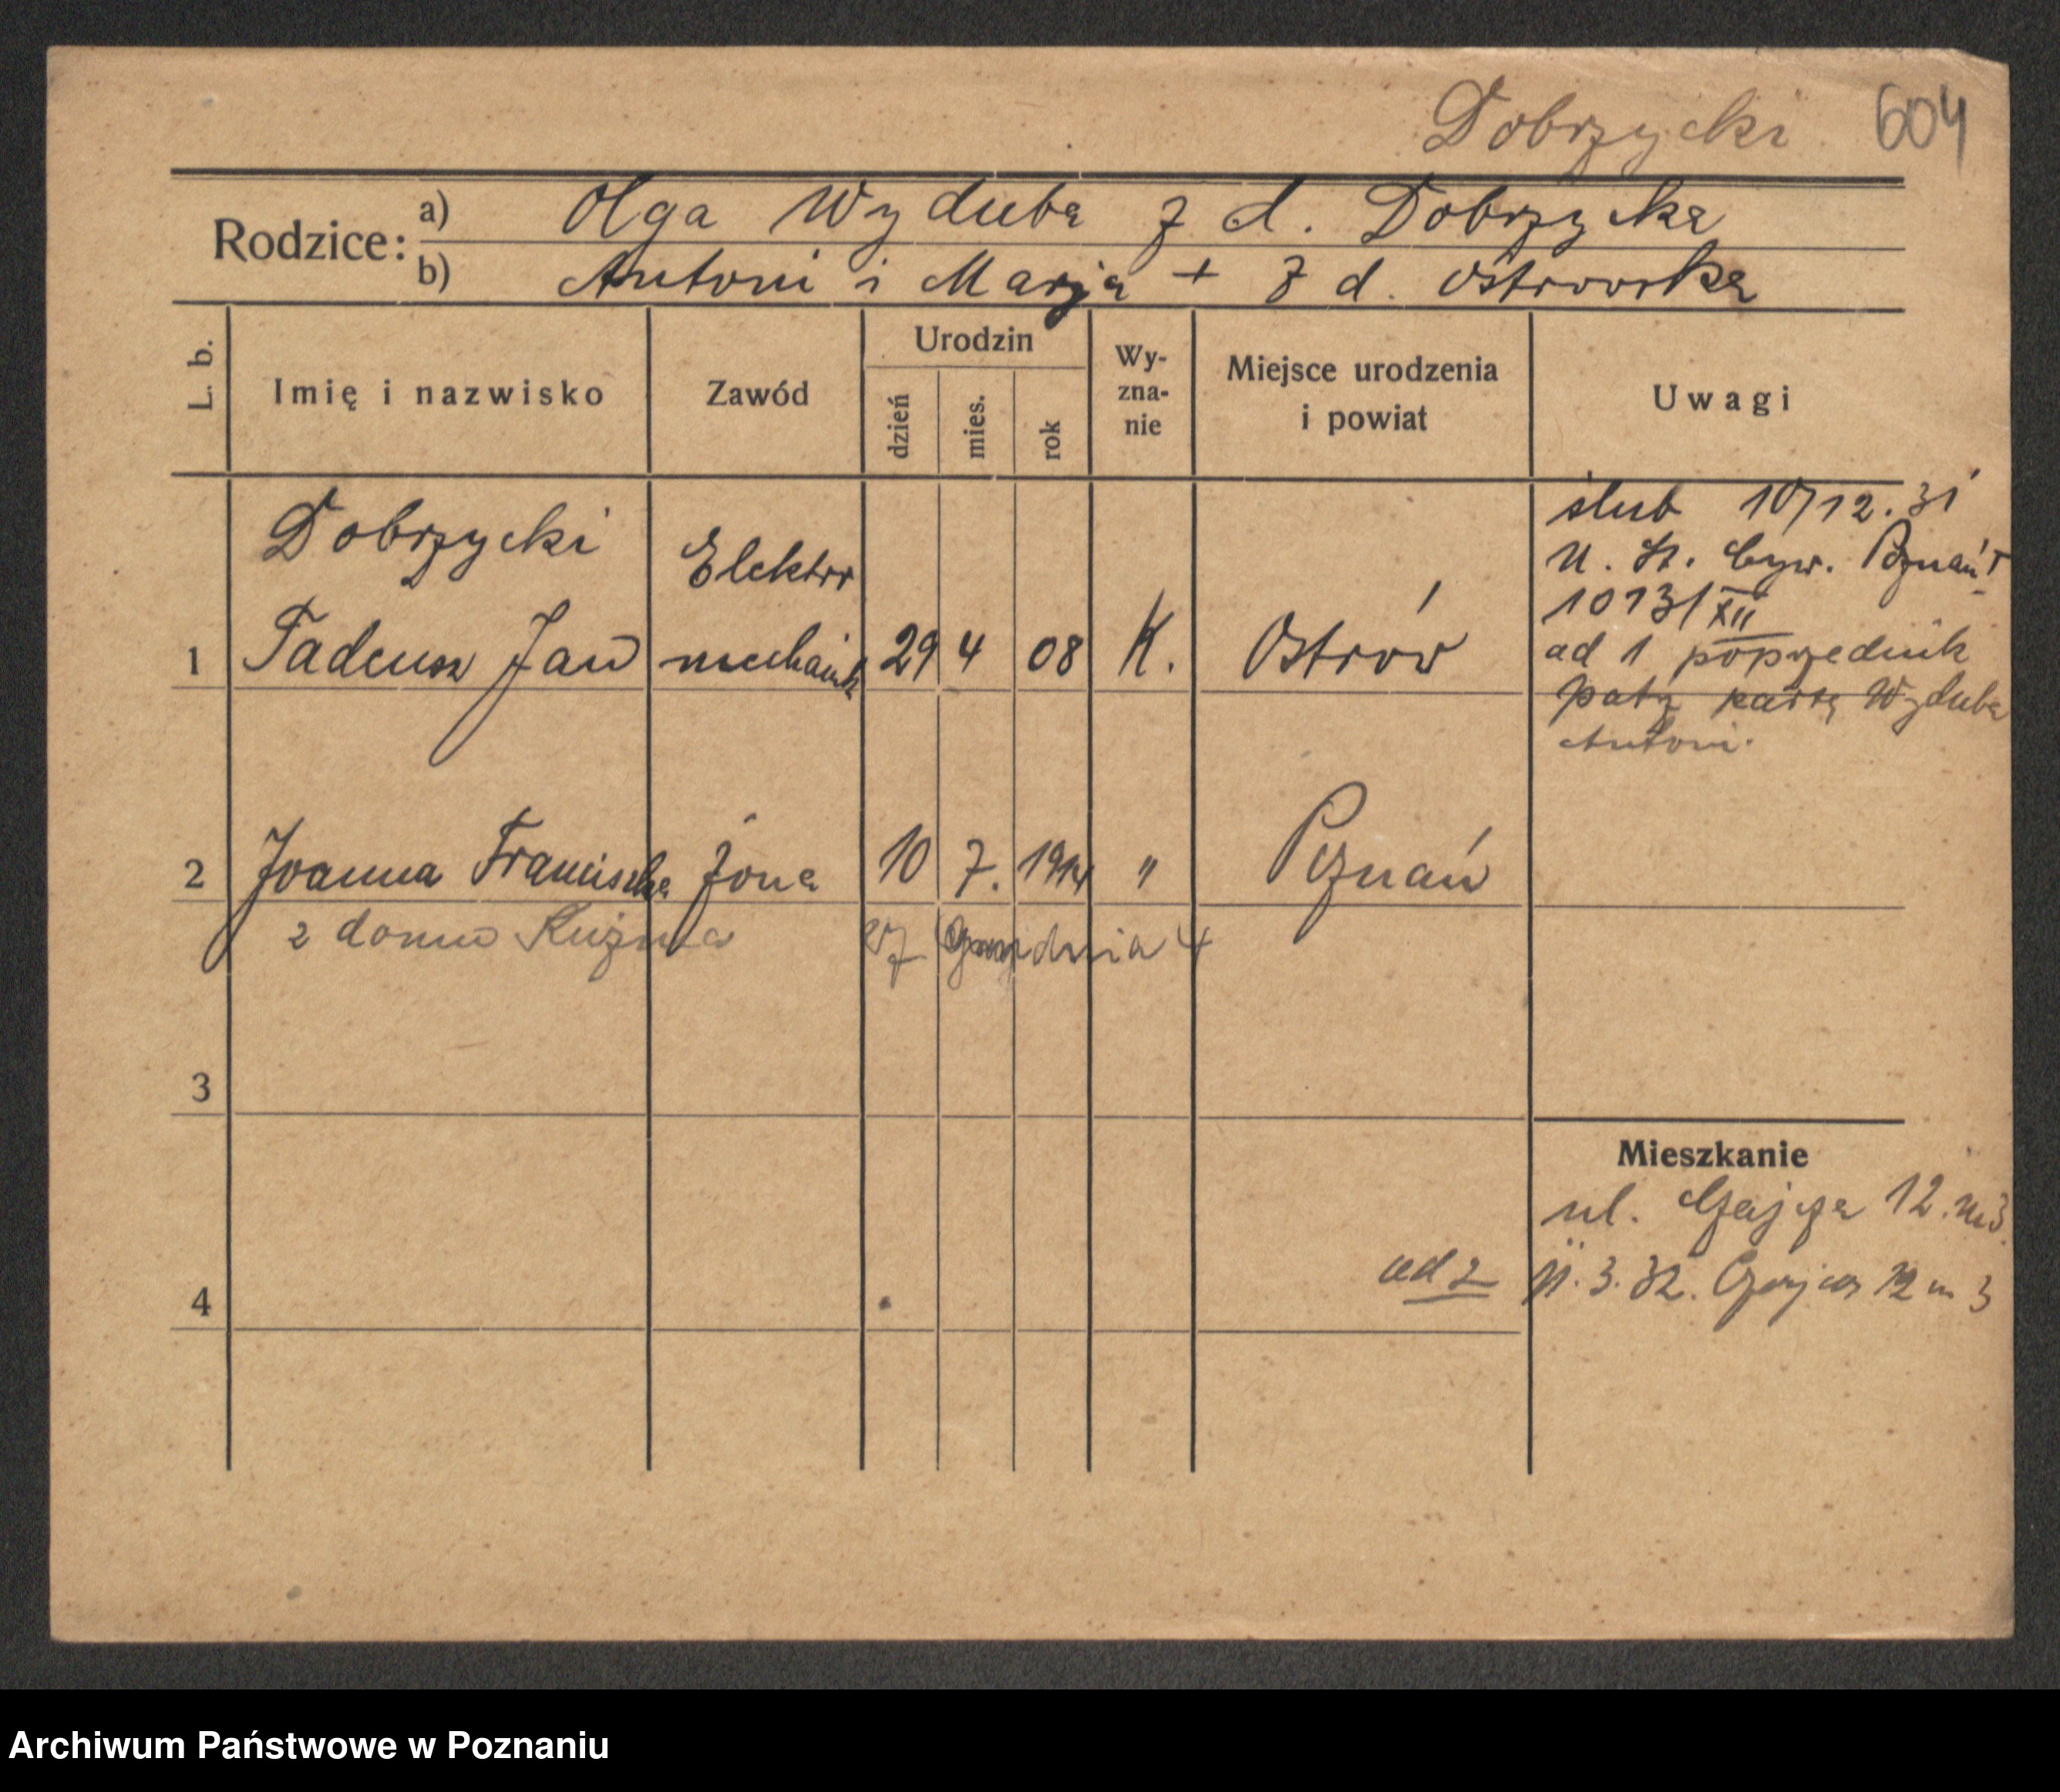 Dobrzycki 604
Rodzice:
a) Olga Wyduba z d. Dobrzycka
b) Antoni i Marja + z d. Ostrowska
L. b.
Imię i nazwisko
Zawód
Urodzin
dzień
mies.
rok
Wy-
zna-
nie
Miejsce urodzenia
i powiat
Uwagi
Dobrzycki
Elektro
1 Tadeusz Jan mechanik 29 4 08 K. Ostrów
ślub 10/12.31
U. St. Cyw. Poznań
1013/XII
ad 1 poprzednik
patrz kartę Wyduba
Antoni.
2 Joanna Franciszka żona 10 7. 1914 " Poznań
z domu Kuźma
27 4
3
Mieszkanie
ul. 12. m 3.
4
ad 2 11. 3. 32. 12 m 3
Archiwum Państwowe w Poznaniu